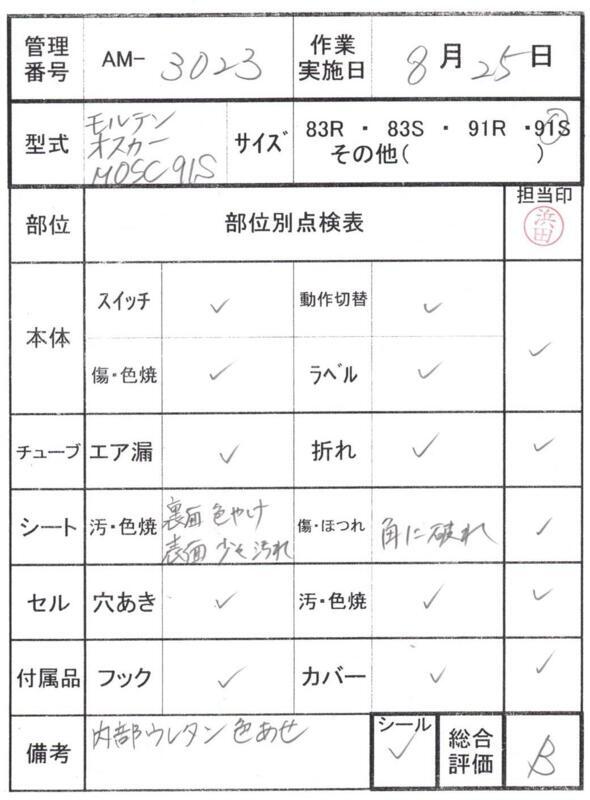 管理番号 AM- 3023 作業実施日 8月25日
型式 モルテン オスカー MOSC91S サイズ 83R ・ 83S ・ 91R ・91S
その他( )
部位 部位別点検表 担当印 浜田
本体 スイッチ ✓ 動作切替 ✓ ✓
傷・色焼 ✓ ラベル ✓
チューブ エア漏 ✓ 折れ ✓ ✓
シート 汚・色焼 裏面 色やけ 表面 少々汚れ 傷・ほつれ 角に破れ ✓
セル 穴あき ✓ 汚・色焼 ✓ ✓
付属品 フック ✓ カバー ✓ ✓
備考 内部ウレタン 色あせ シール ✓ 総合評価 B